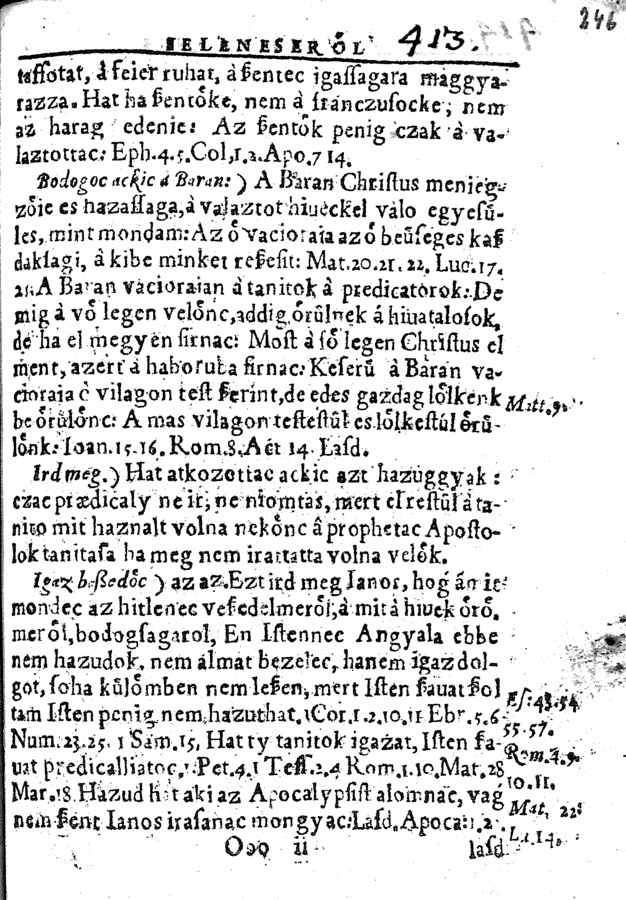 IELENESERŐL 413. 246
taſſotat, à feier ruhat, à ßentec igaſſagara maggya-
razza. Hat ha ßentőke, nem à franczuſocke; nem
az harag edenie: Az ßentők penig czak à va-
laztottac: Eph.4.5. Col.1.2. Apo.7 14.
Bodogoc ackic à Baran:) A Baran Chriſtus menieg-
zőie es hazaſſaga, à valaztot hiueckel valo egyeſű-
les, mint mondam: Az ő vacioraia az ő beűſeges kaß
daklagi, à kibe minket reßeſit: Mat.20.21.22. Luc.17.
21. A Baran vacioraian à tanitok à predicatorok: De
mig à vő legen velőnc, addig őrűlnek á hiuataloſok,
de ha el megyen ſirnac: Moſt à ſő legen Chriſtus el
ment, azert à haboruba ſirnac: Keſerű à Baran va-
cioraia è vilagon teſt ßerint, de edes gazdag lőlkenk
be őrűlőnc: A mas vilagon teſteſtűl es lőlkeſtűl őrű-
lőnk: Ioan.15.16. Rom.8. Act 14. Laſd.
Matt.9.
Ird meg.) Hat atkozottac ackic azt hazuggyak:
czac prædicaly ne ir; ne niomtas, mert el reſtűl à ta-
nito mit haznalt volna nekőnc â prophetac Apoſto-
lok tanitaſa ha meg nem irattatta volna velők.
Igaz beßedőc) az az. Ezt ird meg Ianos, hog án ie-
mondec az hitlenec veßedelmeről, à mit à hiuek őrő-
meről, bodogſagarol, En Iſtennec Angyala ebbe
nem hazudok, nem álmat bezelec, hanem igaz dol-
got, ſoha kűlőmben nem leßen, mert Iſten ſauat ßol
tam Iſten penig nem hazuthat. 1 Cor.1.2.10.11 Ebr.5.6
Num.23.25. 1 Sam.15. Hat ty tanitok igazat, Iſten ſa-
uat predicalliatoc, 1. Pet.4. 1 Teſſ.2.4 Rom.1.10. Mat.28
Mar.18. Hazud hat aki az Apocalypſiſt alomnac, vag
nem ßent Ianos iraſanac mongyac: Laſd. Apoca:1.2
Eſ:43.54
55.57.
Rom.4.9.
10.11.
Mat. 22.
Lu.14.
Ooo ii laſd